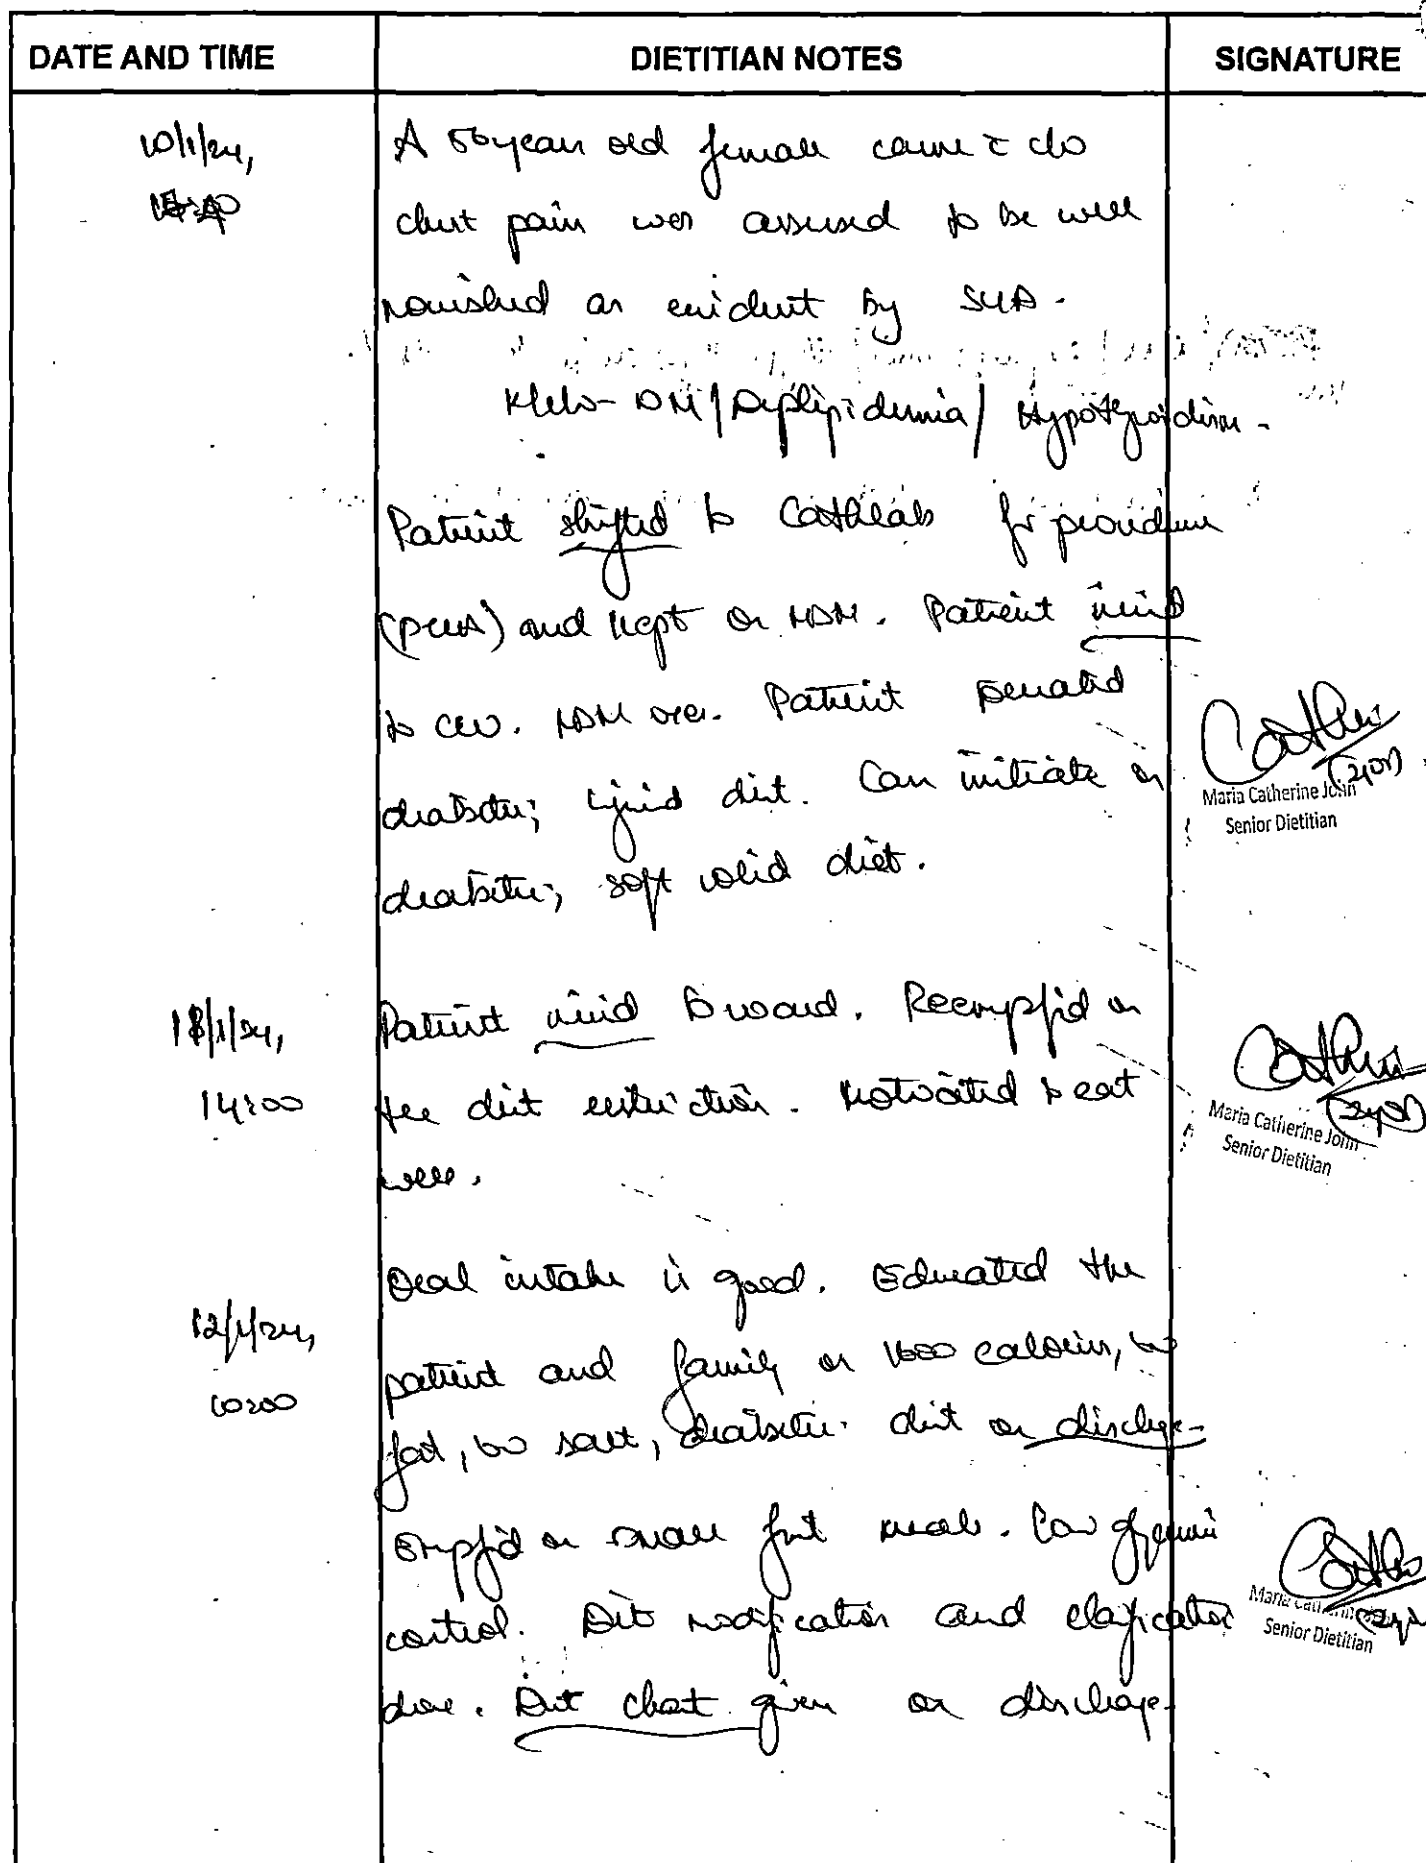 DATE AND TIME DIETITIAN NOTES SIGNATURE
10/1/24, A 56 year old female came c̄ c/o
chest pain was assessed to be well
nourished as evident by SGA.
K/c/o - DM / Dyslipidemia / Hypothyroidism.
Patient shifted to Cathlab for procedure
and kept on NBM. Patient
to CCU. NBM over. Patient
diabetic, liquid diet. Can initiate on
diabetic, soft solid diet.
Maria Catherine John
Senior Dietitian
Patient to ward. on
14:00 the diet restriction. Motivated to eat
well.
Maria Catherine John
Senior Dietitian
12/1/24, Oral intake is good. Educated the
patient and family on 1600 calories, low
10:00 fat, low salt, diabetic diet on discharge.
on small meals. Low glycemic
control. Diet modification and clarification
done. Diet chart given on discharge.
Senior Dietitian